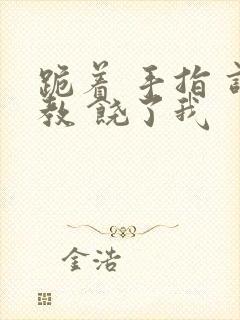 跪着 手指
教 饶了我
金浩